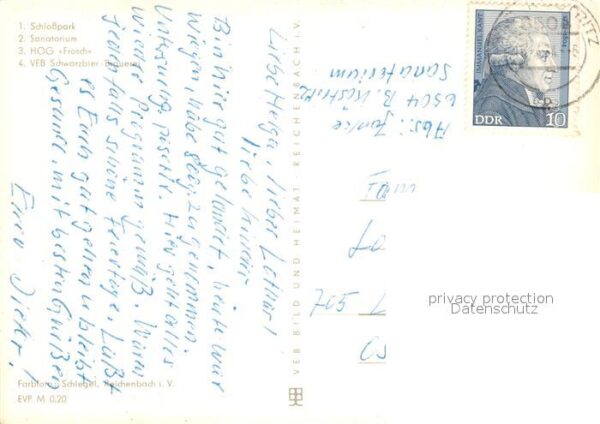 1. Schloßpark
2. Sanatorium
3. HOG »Frosch«
4. VEB Schwarzbier-Brauerei
Liebe Helga, lieber Lothar!
liebe Kinder
Bin hier gut gelandet, heute war
wiegen, habe 800g zugenommen
Untersuchung positiv. Hier geht alles
wieder Programm gemäß. Waren
jedenfalls schöne Feiertage. Laßt
es Euch gut gehen u. bleibt
Gesund. mit besten Grüßen
Euer Dieter!
Farbfoto: Schlegel, Reichenbach i. V.
EVP M 0,20
VEB BILD UND HEIMAT · REICHENBACH i. V.
Abs.: Junke
6504 B. Köstritz
Sanatorium
IMMANUEL KANT
DDR 10
705
privacy protection
Datenschutz